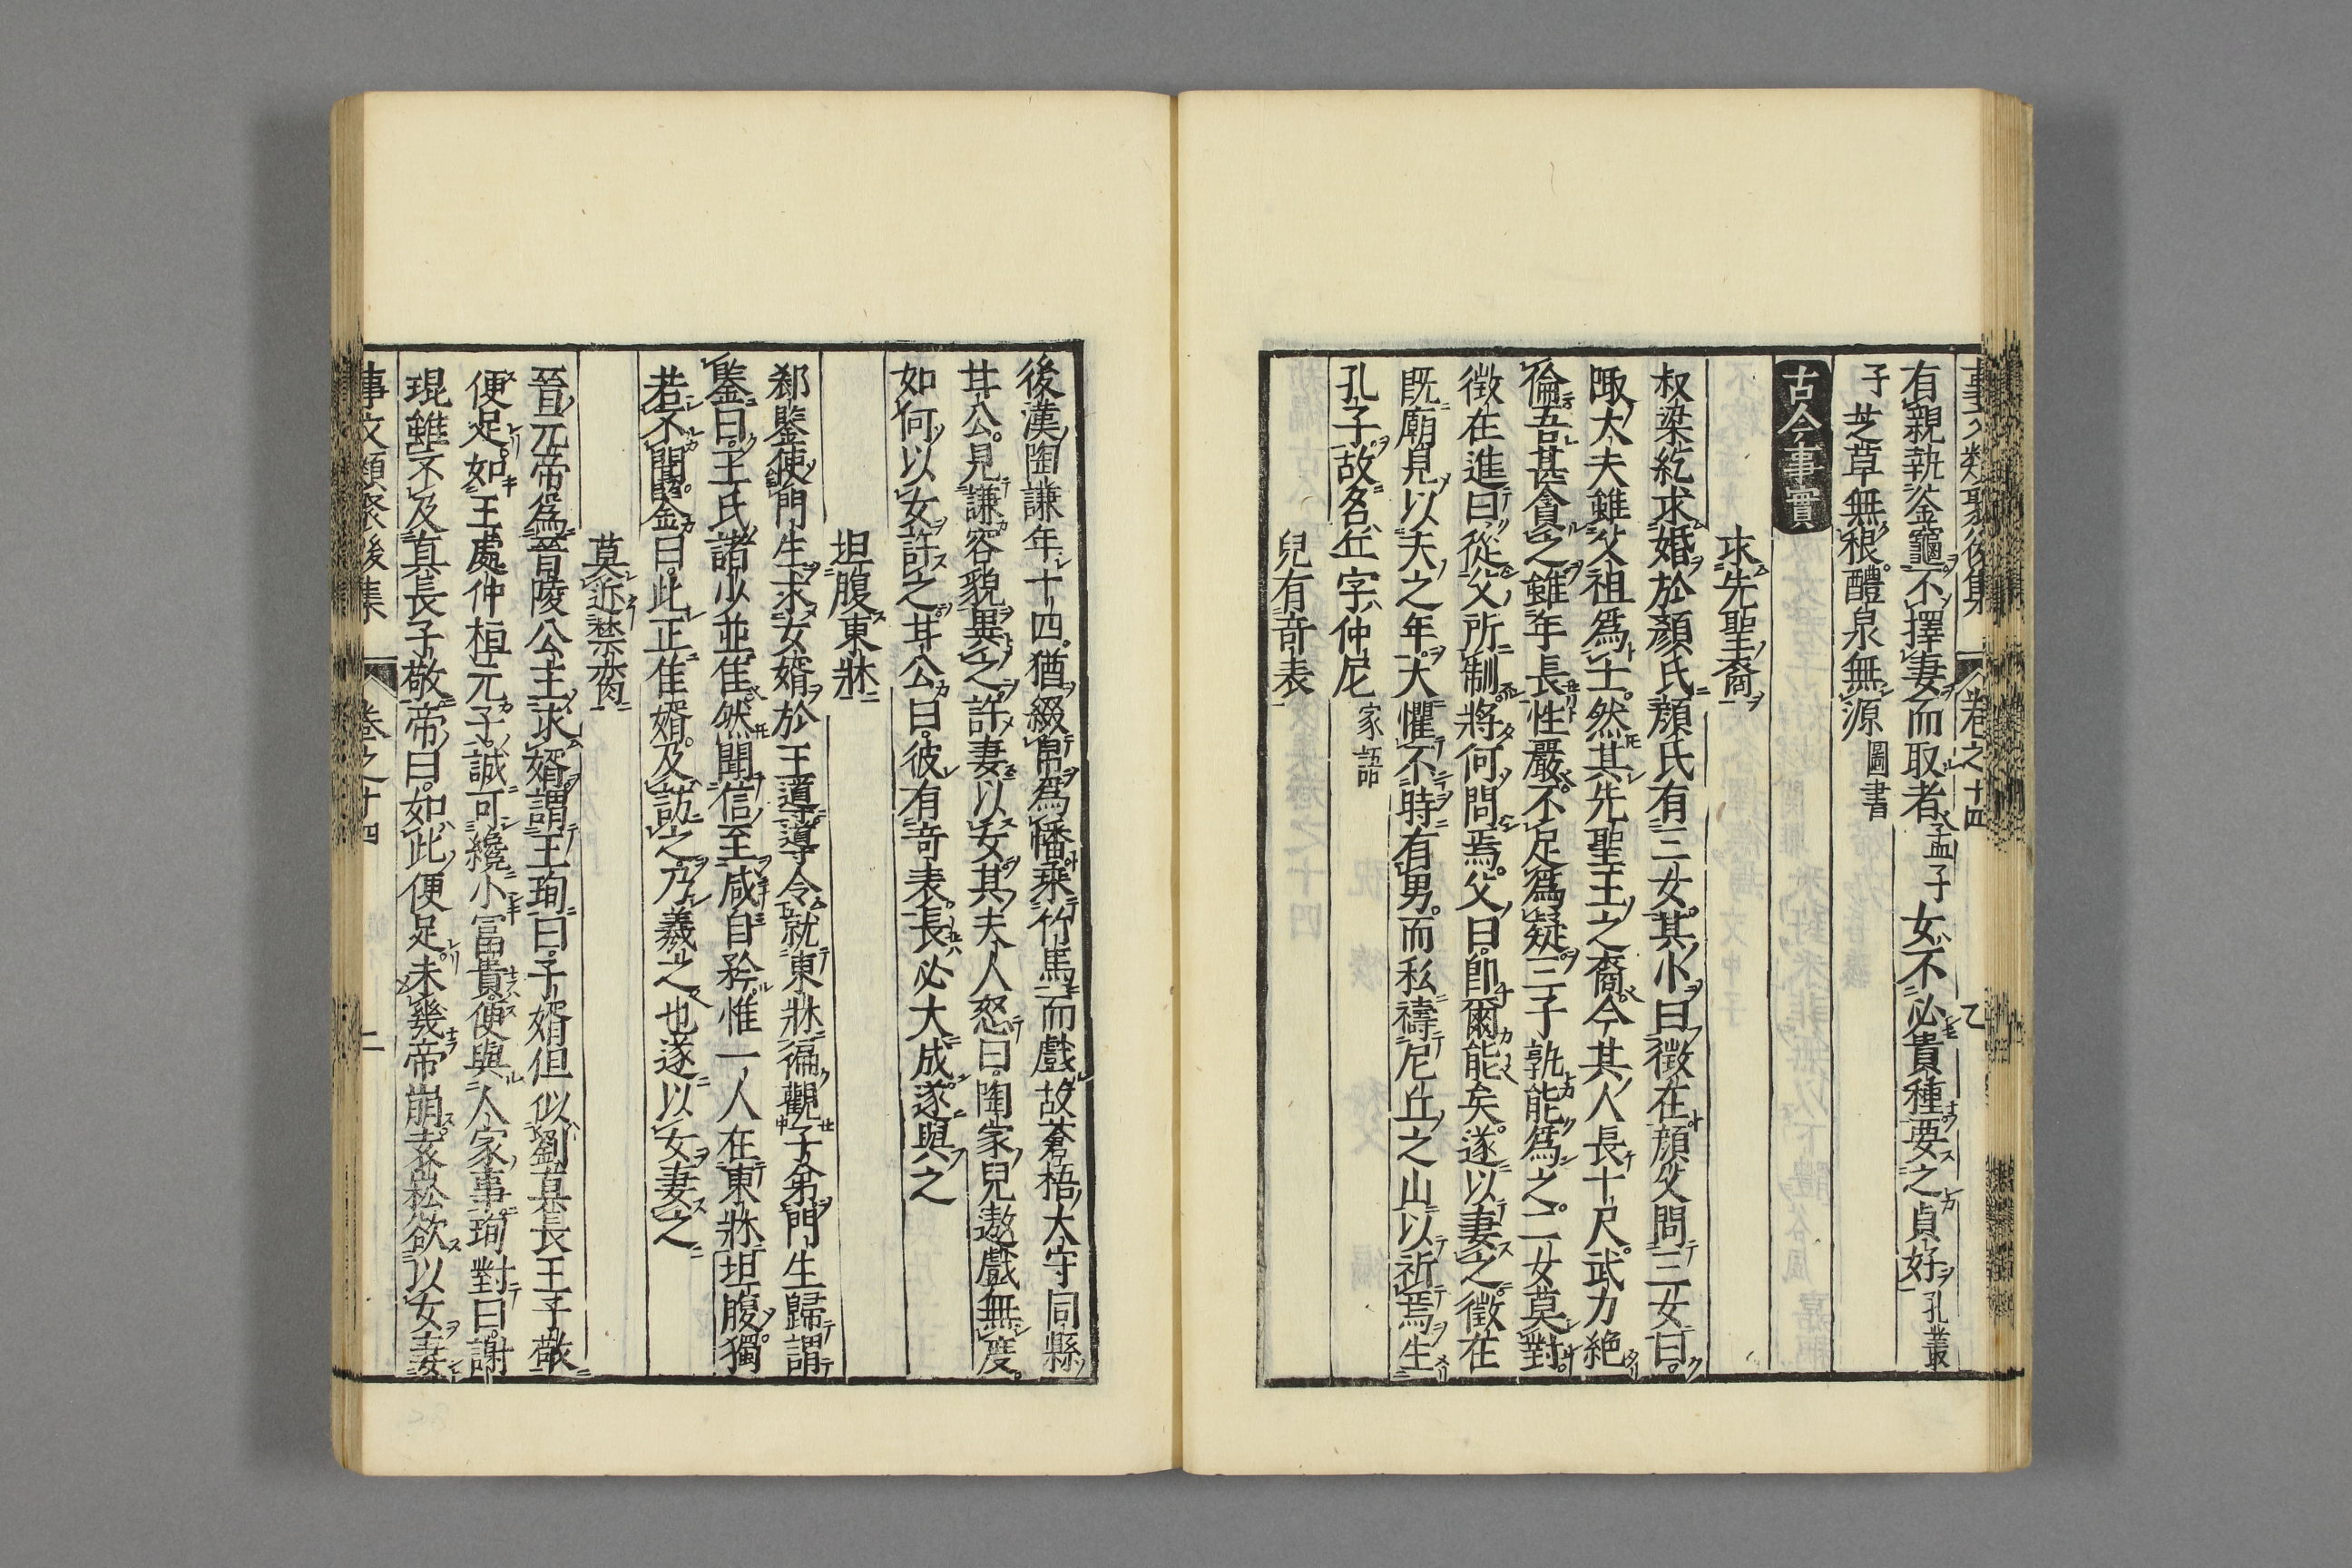 事文類聚後集 卷之十四 乙
有親執釜竈不擇妻而取者孟子女不必貴種要之貞好孔叢
子芝草無根醴泉無源圖書
古今事實
求先聖裔
叔梁紇求婚於顏氏顏氏有三女其小曰徵在顏父問三女曰
陬大夫雖父祖爲士然其先聖王之裔今其人長十尺武力絶
倫吾甚貪之雖年長性嚴不足爲疑三子孰能爲之二女莫對
徵在進曰從父所制將何問焉父曰卽爾能矣遂以妻之徵在
既廟見以夫之年大懼不時有男而私禱尼丘之山以祈焉生
孔子故名丘字仲尼家語
兒有竒表
後漢陶謙年十四猶綴帛爲幡乘竹馬而戲故蒼梧大守同縣
甘公見謙容貌異之許妻以女其夫人怒曰陶家兒遨戲無度
如何以女許之甘公曰彼有竒表長必大成遂與之
坦腹東牀
郄鑒使門生求女婿於王導導令就東牀徧觀子弟門生歸謂
鑒曰王氏諸少並佳然聞信至咸自矜惟一人在東牀坦腹獨
若不聞鑒曰此正佳婿及訪之乃羲之也遂以女妻之
莫近禁臠
晉元帝爲晉陵公主求婿謂王珣曰子婿但似劉真長王子敬
便足如王處仲桓元子誠可纔小富貴便與人家事珣對曰謝
琨雖不及真長子敬帝曰如此便足未幾帝崩袁崧欲以女妻
事文類聚後集 卷之十四 二